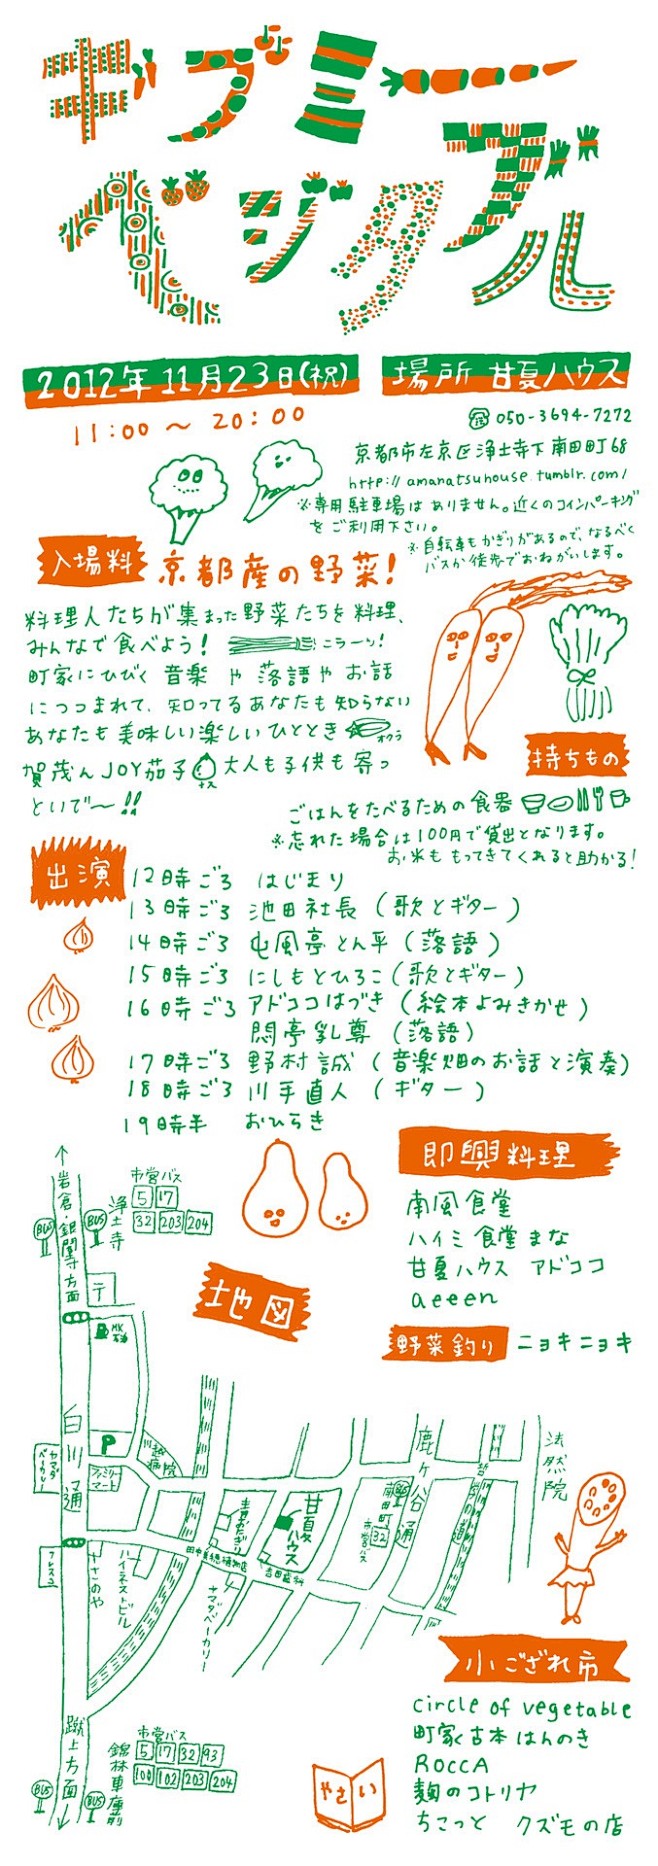 ギブミー
ベジタブル
2012年11月23日(祝)
11:00〜20:00
場所 甘夏ハウス
050-3694-7272
京都市左京区浄土寺下南田町68
http://amanatsuhouse.tumblr.com/
※専用駐車場はありません。近くのコインパーキング
をご利用下さい。
※自転車もかぎりがあるので、なるべく
バスか徒歩でおねがいします。
入場料 京都産の野菜!
料理人たちが集まった野菜たちを料理、
みんなで食べよう! ニラーッ!
町家にひびく音楽や落語やお話
につつまれて、知ってるあなたも知らない
あなたも美味しい楽しいひととき オクラ
賀茂んJOY茄子 ナス 大人も子供も寄っ
といで〜!!
持ちもの
ごはんをたべるための食器
※忘れた場合は100円で貸出となります。
お米ももってきてくれると助かる!
出演
12時ごろ はじまり
13時ごろ 池田社長(歌とギター)
14時ごろ 屯風亭とん平(落語)
15時ごろ にしもとひろこ(歌とギター)
16時ごろ アドココはづき(絵本よみきかせ)
悶亭乳尊(落語)
17時ごろ 野村誠(音楽畑のお話と演奏)
18時ごろ 川手直人(ギター)
19時半 おひらき
即興料理
南風食堂
ハイミ食堂まな
甘夏ハウス アドココ
aeeen
野菜釣り ニョキニョキ
地図
↑岩倉・銀閣寺方面
BUS
BUS
浄土寺
市営バス
5 17
32 203 204
〒
MK石油
白川通
P
川越病院
ヤマダベーカリー
ファミリーマート
フレスコ
ささのや
ハイネストビル
甘夏ハウス
吉田歯科
ヤマダベーカリー
鹿ヶ谷通
BUS
南田町
市営バス
32
哲学の道
法然院
蹴上方面
BUS
BUS
錦林車庫前
市営バス
5 17 32 93
100 102 203 204
小ござれ市
circle of vegetable
町家古本はんのき
ROCCA
麹のコトリヤ
ちこっと クズモの店
やさい